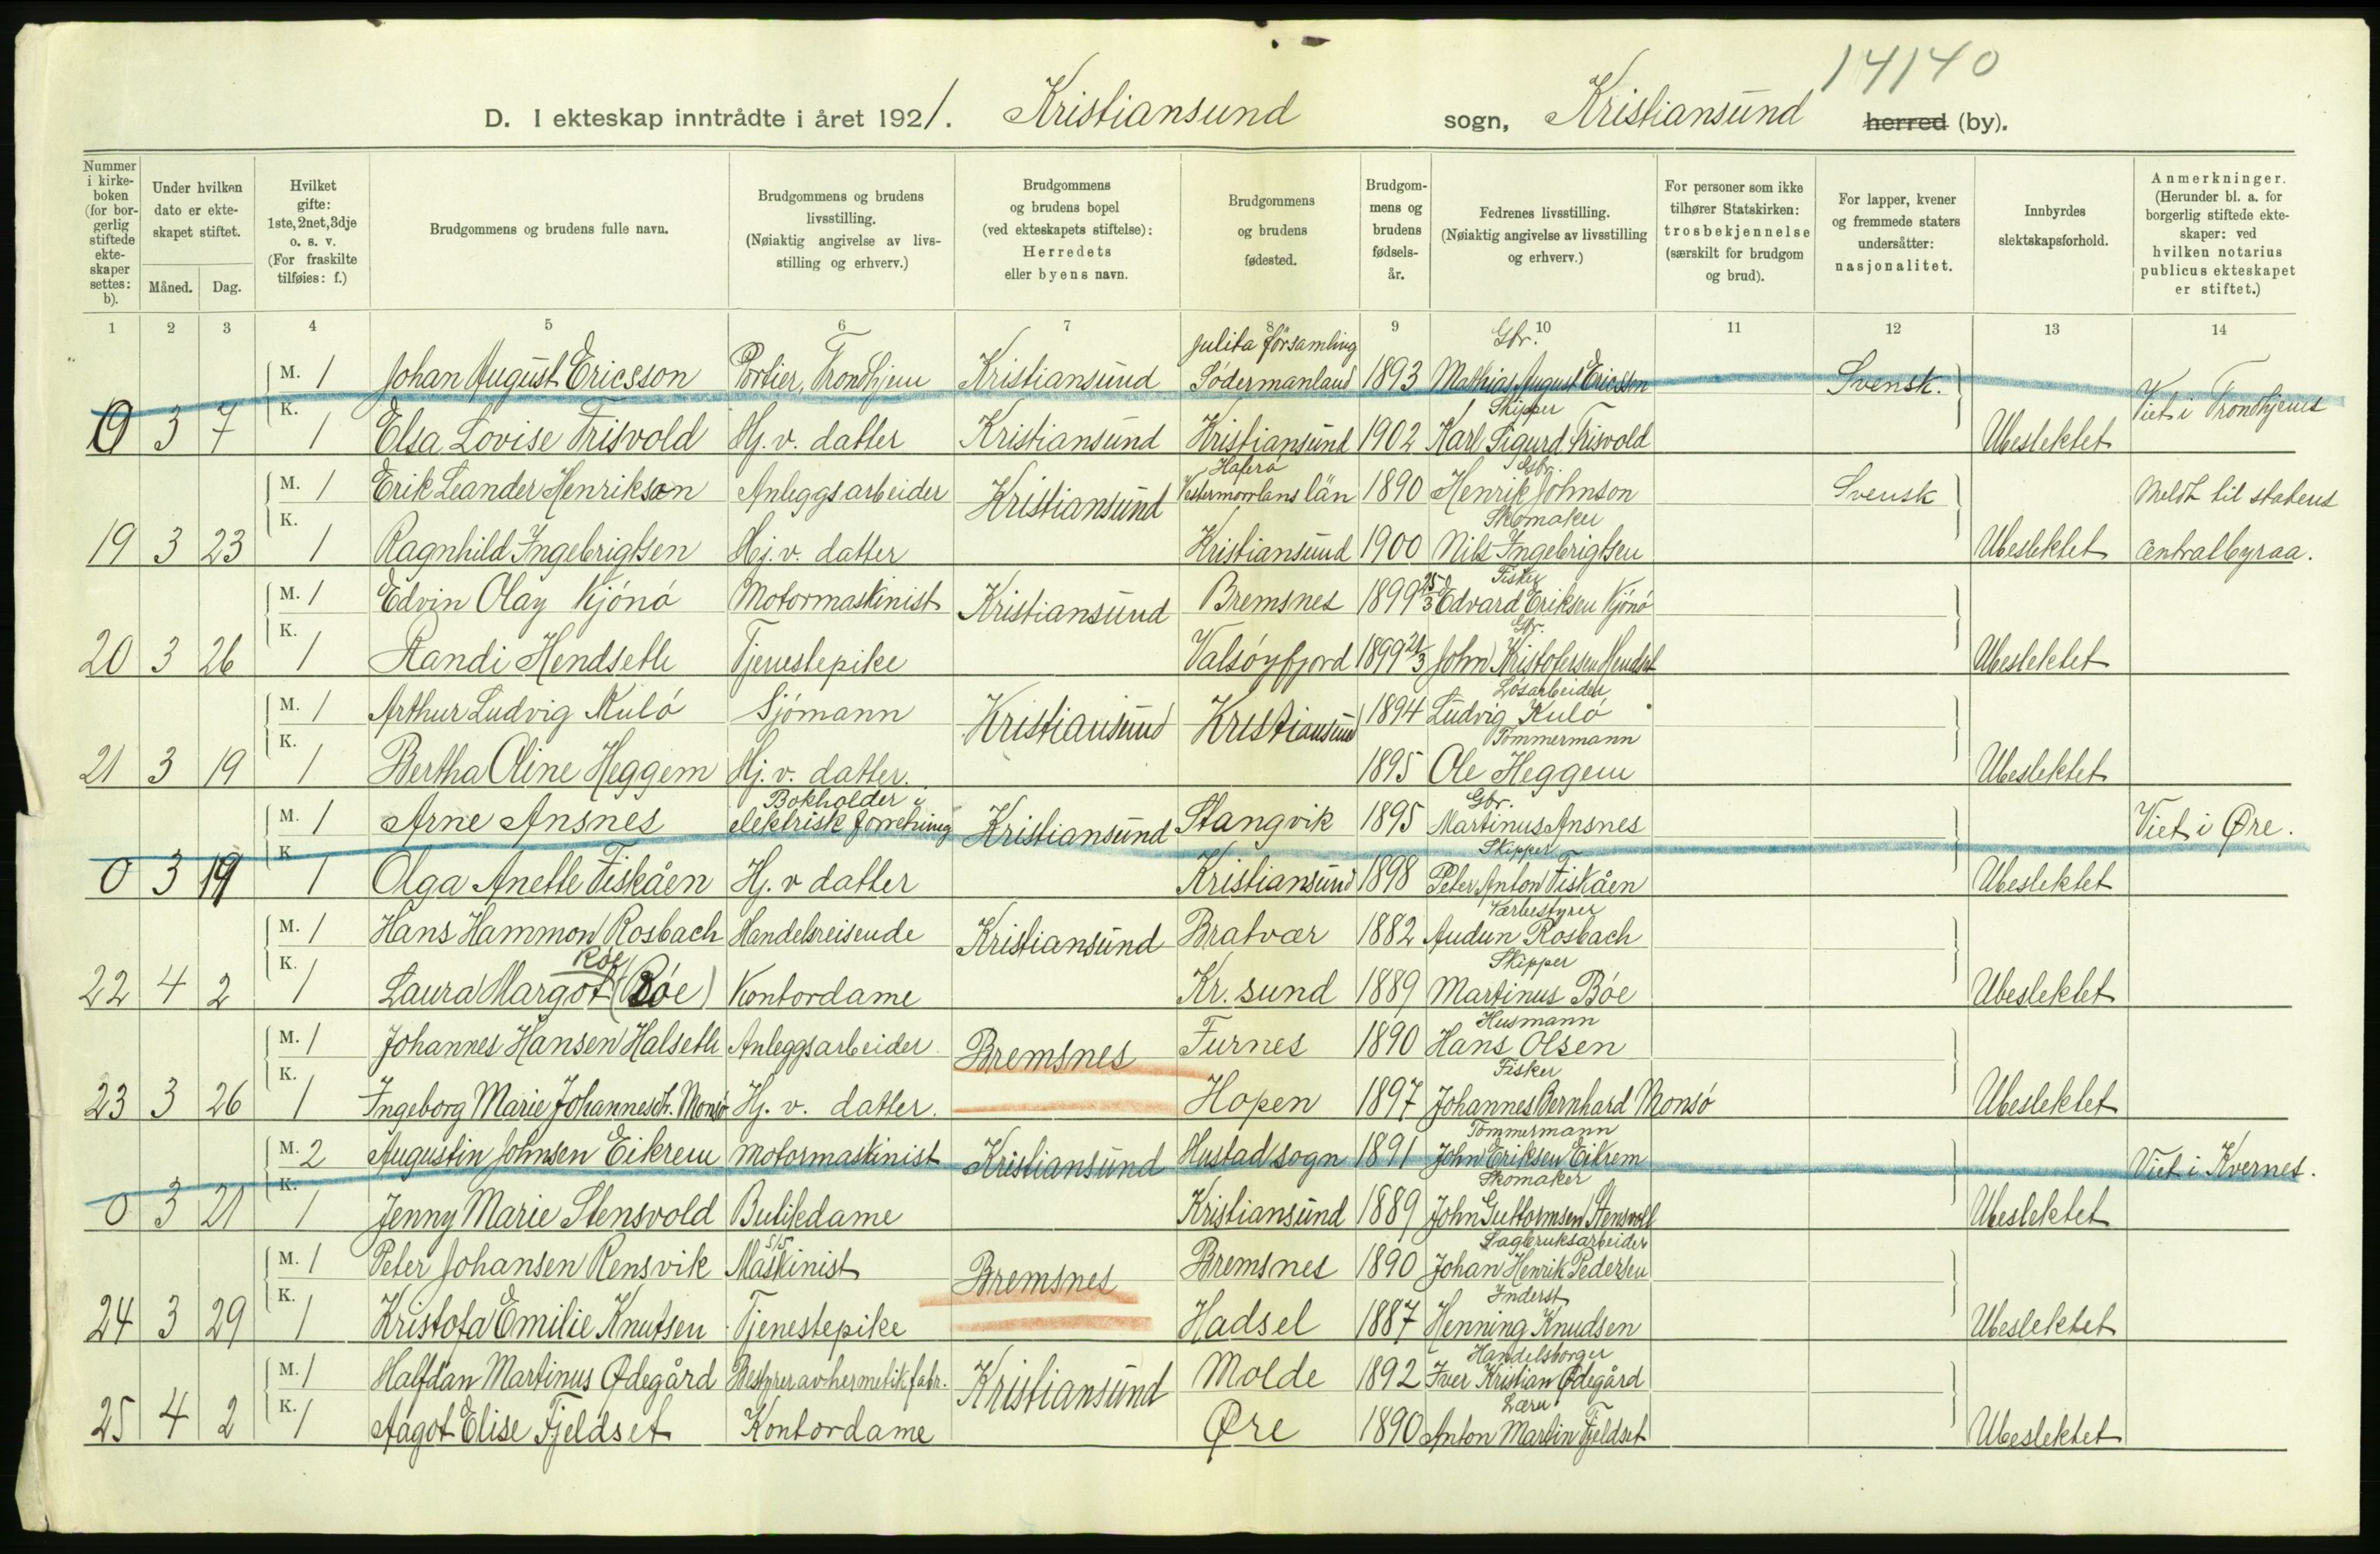 14140
D. I ekteskap inntrådte i året 1921. Kristiansund sogn, Kristiansund herred (by).
Nummer i kirke-boken (for bor-gerlig stiftede ekte-skaper settes: b).
Under hvilken dato er ekte-skapet stiftet.
Måned. Dag.
Hvilket gifte: 1ste, 2net, 3dje o. s. v. (For fraskilte tilføies: f.)
Brudgommens og brudens fulle navn.
Brudgommens og brudens livsstilling. (Nøiaktig angivelse av livs-stilling og erhverv.)
Brudgommens og brudens bopel (ved ekteskapets stiftelse): Herredets eller byens navn.
Brudgommens og brudens fødested.
Brudgom-mens og brudens fødsels-år.
Fedrenes livsstilling. (Nøiaktig angivelse av livsstilling og erhverv.)
For personer som ikke tilhører Statskirken: trosbekjennelse (særskilt for brudgom og brud).
For lapper, kvener og fremmede staters undersåtter: nasjonalitet.
Innbyrdes slektskapsforhold.
Anmerkninger. (Herunder bl. a. for borgerlig stiftede ekte-skaper: ved hvilken notarius publicus ekteskapet er stiftet.)
1 2 3 4 5 6 7 8 9 10 11 12 13 14
Julita församling Gbr.
M. 1 Johan August Ericsson Portier, Trondhjem Kristiansund Södermanland 1893 Mathias August Ericsson Svensk. Viet i Trondhjem
Skipper
0 3 7 K. 1 Elsa Lovise Trisvold Hj. v. datter Kristiansund Kristiansund 1902 Karl Sigurd Trisvold Ubeslektet
Haferö Gbr.
M. 1 Erik Leander Henrikson Anleggsarbeider Kristiansund Vestermorrlans län 1890 Henrik Johnson Svensk Meldt til statens
Skomaker
19 3 23 K. 1 Ragnhild Ingebrigtsen Hj. v. datter Kristiansund 1900 Nils Ingebrigtsen Ubeslektet Centralbyraa.
Fisker
M. 1 Edvin Olay Kjönö Motormaskinist Kristiansund Bremsnes 1899 25/3 Edvard Eriksen Kjönö
Gbr.
20 3 26 K. 1 Randi Hendseth Tjenestepike Valsöyfjord 1899 21/3 John Kristofersen Hendset Ubeslektet
Lösarbeider
M. 1 Arthur Ludvig Kulö Sjömann Kristiansund Kristiansund 1894 Ludvig Kulö
Tömmermann
21 3 19 K. 1 Bertha Oline Heggem Hj. v. datter. 1895 Ole Heggem Ubeslektet
Bokholder i Gbr.
M. 1 Arne Ansnes elektrisk forretning Kristiansund Stangvik 1895 Martinus Ansnes Viet i Øre.
Skipper
0 3 19 K. 1 Olga Anette Fiskåen Hj. v datter Kristiansund 1898 Peter Anton Fiskåen Ubeslektet
Værbestyrer
M. 1 Hans Hammon Rosbach Handelsreisende Kristiansund Bratvær 1882 Audun Rosbach
Röe Skipper
22 4 2 K. 1 Laura Margot (Böe) Kontordame Kr. sund 1889 Martinus Böe Ubeslektet
Husmann
M. 1 Johannes Hansen Halseth Anleggsarbeider Bremsnes Furnes 1890 Hans Olsen
Fisker
23 3 26 K. 1 Ingeborg Marie Johannesdtr. Monsö Hj. v. datter. Hopen 1897 Johannes Bernhard Monsö Ubeslektet
Tömmermann
M. 2 Augustin Johnsen Eikrem motormaskinist Kristiansund Hustad sogn 1891 John Eriksen Eikrem Viet i Kvernes.
Skomaker
0 3 21 K. 1 Jenny Marie Stensvold Butikdame Kristiansund 1889 John Guttormsen Stensvoll Ubeslektet
S/S Sagbruksarbeider
M. 1 Peter Johansen Rensvik Maskinist Bremsnes Bremsnes 1890 Johan Henrik Pedersen
Inderst
24 3 29 K. 1 Kristofa Emilie Knutsen Tjenestepike Hadsel 1887 Henning Knudsen Ubeslektet
Handelsborger
M. 1 Halfdan Martinus Ødegård Bestyrer av hermetikfabr. Kristiansund Molde 1892 Iver Kristian Ødegård
Lærer
25 4 2 K. 1 Aagot Elise Fjeldset Kontordame Øre 1890 Anton Martin Fjeldset Ubeslektet